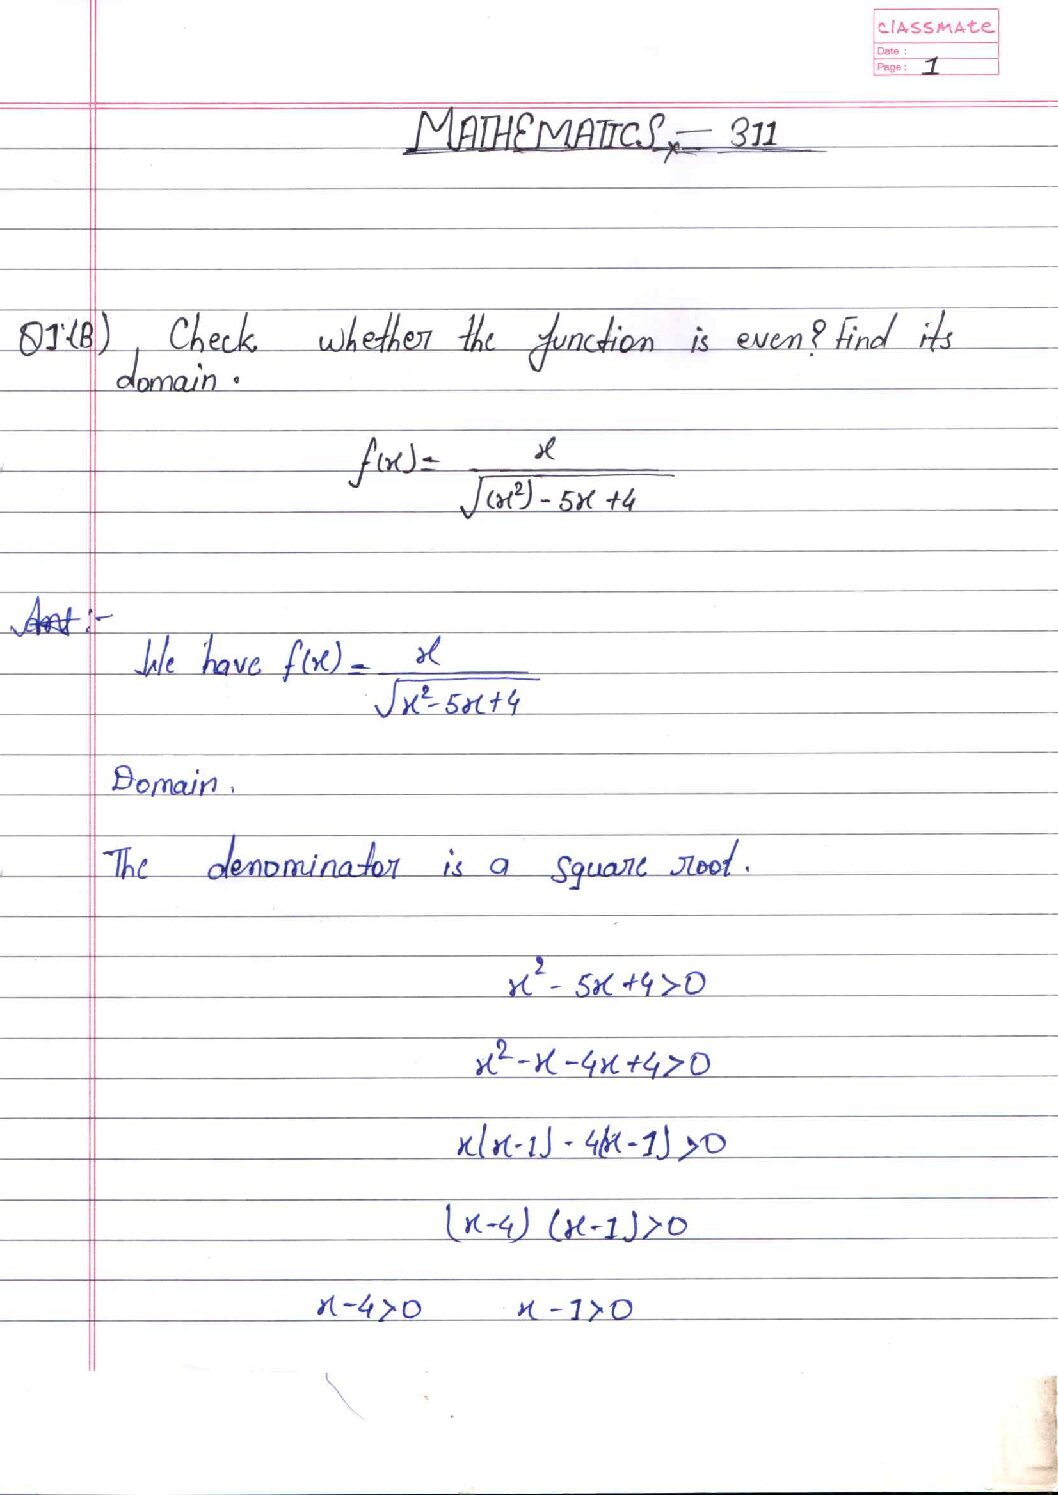 classmate
Date :
Page : 1
MATHEMATICS - 311
Q1.(B), Check whether the function is even? Find its
domain.
f(x) = x / √(x²) - 5x + 4
Ans :-
We have f(x) = x / √x² - 5x + 4
Domain.
The denominator is a square root.
x² - 5x + 4 > 0
x² - x - 4x + 4 > 0
x(x - 1) - 4(x - 1) > 0
(x - 4) (x - 1) > 0
x - 4 > 0 x - 1 > 0